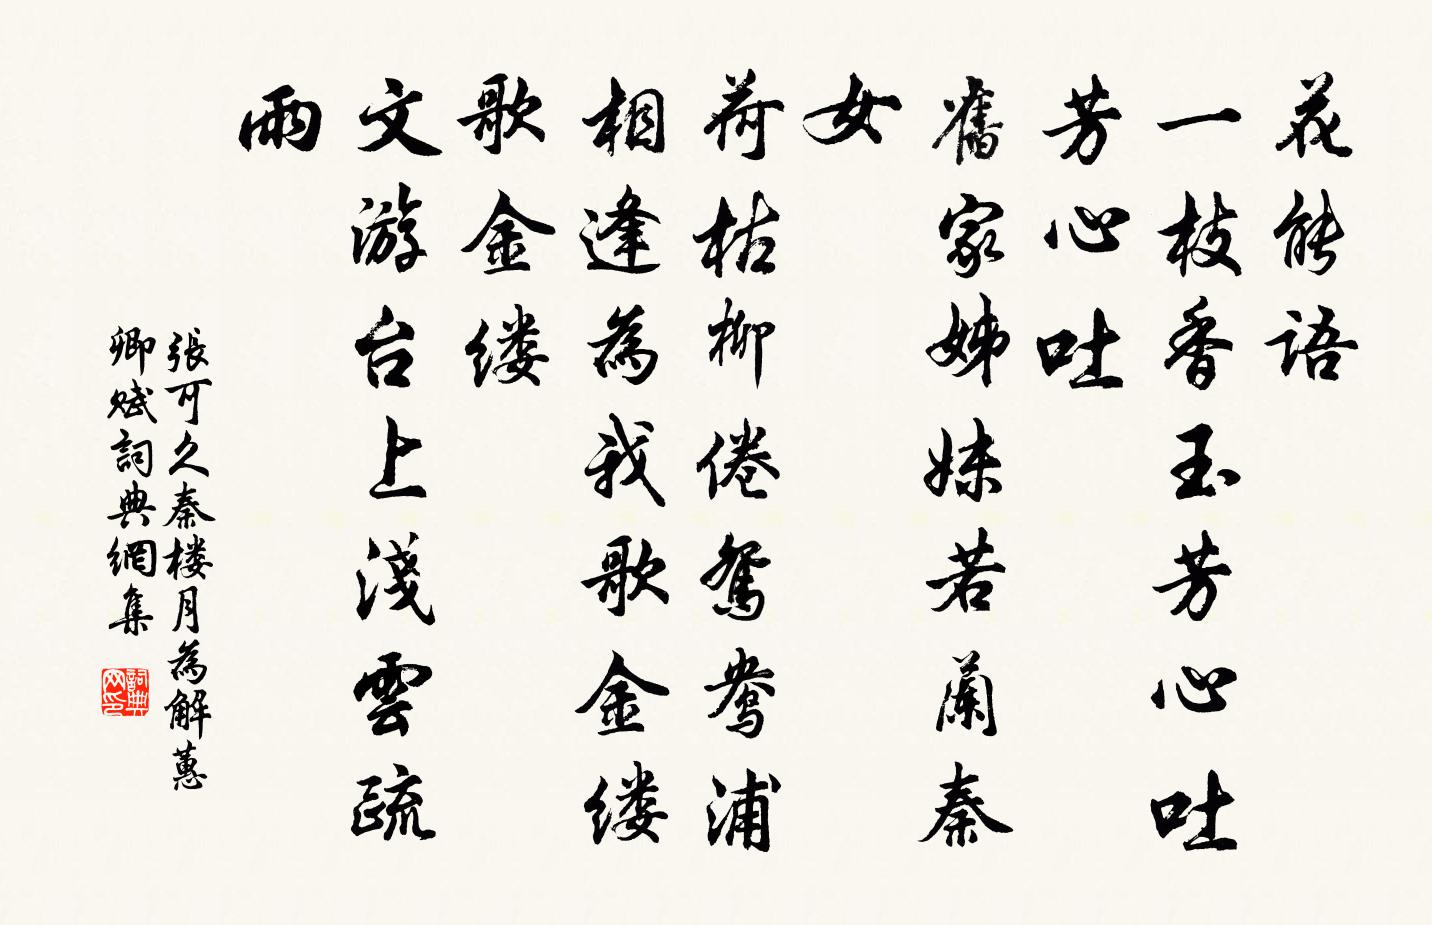 花能語
一枝香玉芳心吐
芳心吐
舊家姊妹若蘭秦
女
荷枯柳倦鴛鴦浦
相逢為我歌金缕
歌金缕
文游台上淺雲疏
雨
張可久秦楼月為解蕙
卿赋詞典網集
詞典
网印